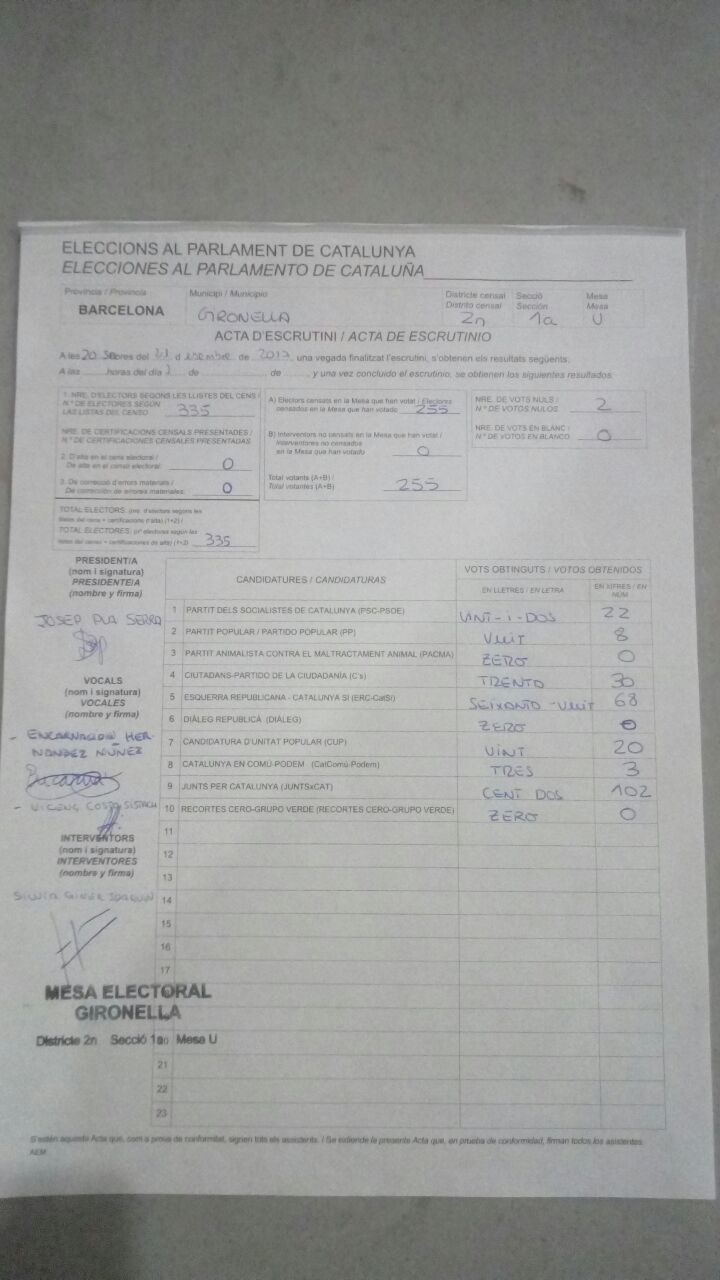 ELECCIONS AL PARLAMENT DE CATALUNYA
ELECCIONES AL PARLAMENTO DE CATALUÑA
Província / Provincia
BARCELONA
Municipi / Municipio
GIRONELLA
Districte censal
Distrito censal
2n
Secció
Sección
1a
Mesa
Mesa
U
ACTA D'ESCRUTINI / ACTA DE ESCRUTINIO
A les 20 hores del 21 d de 2017, una vegada finalitzat l'escrutini, s'obtenen els resultats següents:
A las horas del día de de , y una vez concluido el escrutinio, se obtienen los siguientes resultados:
1. NRE. D'ELECTORS SEGONS LES LLISTES DEL CENS /
N.º DE ELECTORES SEGÚN
LAS LISTAS DEL CENSO 335
NRE. DE CERTIFICACIONS CENSALS PRESENTADES /
N.º DE CERTIFICACIONES CENSALES PRESENTADAS
2. D'alta en el cens electoral /
De alta en el censo electoral: 0
3. De correcció d'errors materials /
De corrección de errores materiales: 0
TOTAL ELECTORS: (nre. d'electors segons les
llistes del cens + certificacions d'alta) (1+2) /
TOTAL ELECTORES: (nº electores según las
listas del censo + certificaciones de alta) (1+2) 335
A) Electors censats en la Mesa que han votat / Electores
censados en la Mesa que han votado 255
B) Interventors no censats en la Mesa que han votat /
Interventores no censados
en la Mesa que han votado 0
Total votants (A+B) /
Total votantes (A+B) 255
NRE. DE VOTS NULS /
N.º DE VOTOS NULOS 2
NRE. DE VOTS EN BLANC /
N.º DE VOTOS EN BLANCO 0
PRESIDENT/A
(nom i signatura)
PRESIDENTE/A
(nombre y firma)
JOSEP PLA SERRA
VOCALS
(nom i signatura)
VOCALES
(nombre y firma)
- ENCARNACION HER-
NANDEZ NÚÑEZ
- VICENÇ COSTA SISTACH
INTERVENTORS
(nom i signatura)
INTERVENTORES
(nombre y firma)
SILVIA GINER JOAQUIN
CANDIDATURES / CANDIDATURAS
VOTS OBTINGUTS / VOTOS OBTENIDOS
EN LLETRES / EN LETRA
EN XIFRES / EN NÚM
1 PARTIT DELS SOCIALISTES DE CATALUNYA (PSC-PSOE) VINT-I-DOS 22
2 PARTIT POPULAR / PARTIDO POPULAR (PP) VUIT 8
3 PARTIT ANIMALISTA CONTRA EL MALTRACTAMENT ANIMAL (PACMA) ZERO 0
4 CIUTADANS-PARTIDO DE LA CIUDADANÍA (C's) TRENTO 30
5 ESQUERRA REPUBLICANA - CATALUNYA SÍ (ERC-CatSí) SEIXONTO-VUIT 68
6 DIÀLEG REPUBLICÀ (DIÀLEG) ZERO 0
7 CANDIDATURA D'UNITAT POPULAR (CUP) VINT 20
8 CATALUNYA EN COMÚ-PODEM (CatComú-Podem) TRES 3
9 JUNTS PER CATALUNYA (JUNTSxCAT) CENT DOS 102
10 RECORTES CERO-GRUPO VERDE (RECORTES CERO-GRUPO VERDE) ZERO 0
11
12
13
14
15
16
17
MESA ELECTORAL
GIRONELLA
Districte 2n Secció 1a Mesa U
21
22
23
S'estén aquesta Acta que, com a prova de conformitat, signen tots els assistents. / Se extiende la presente Acta que, en prueba de conformidad, firman todos los asistentes.
AEM